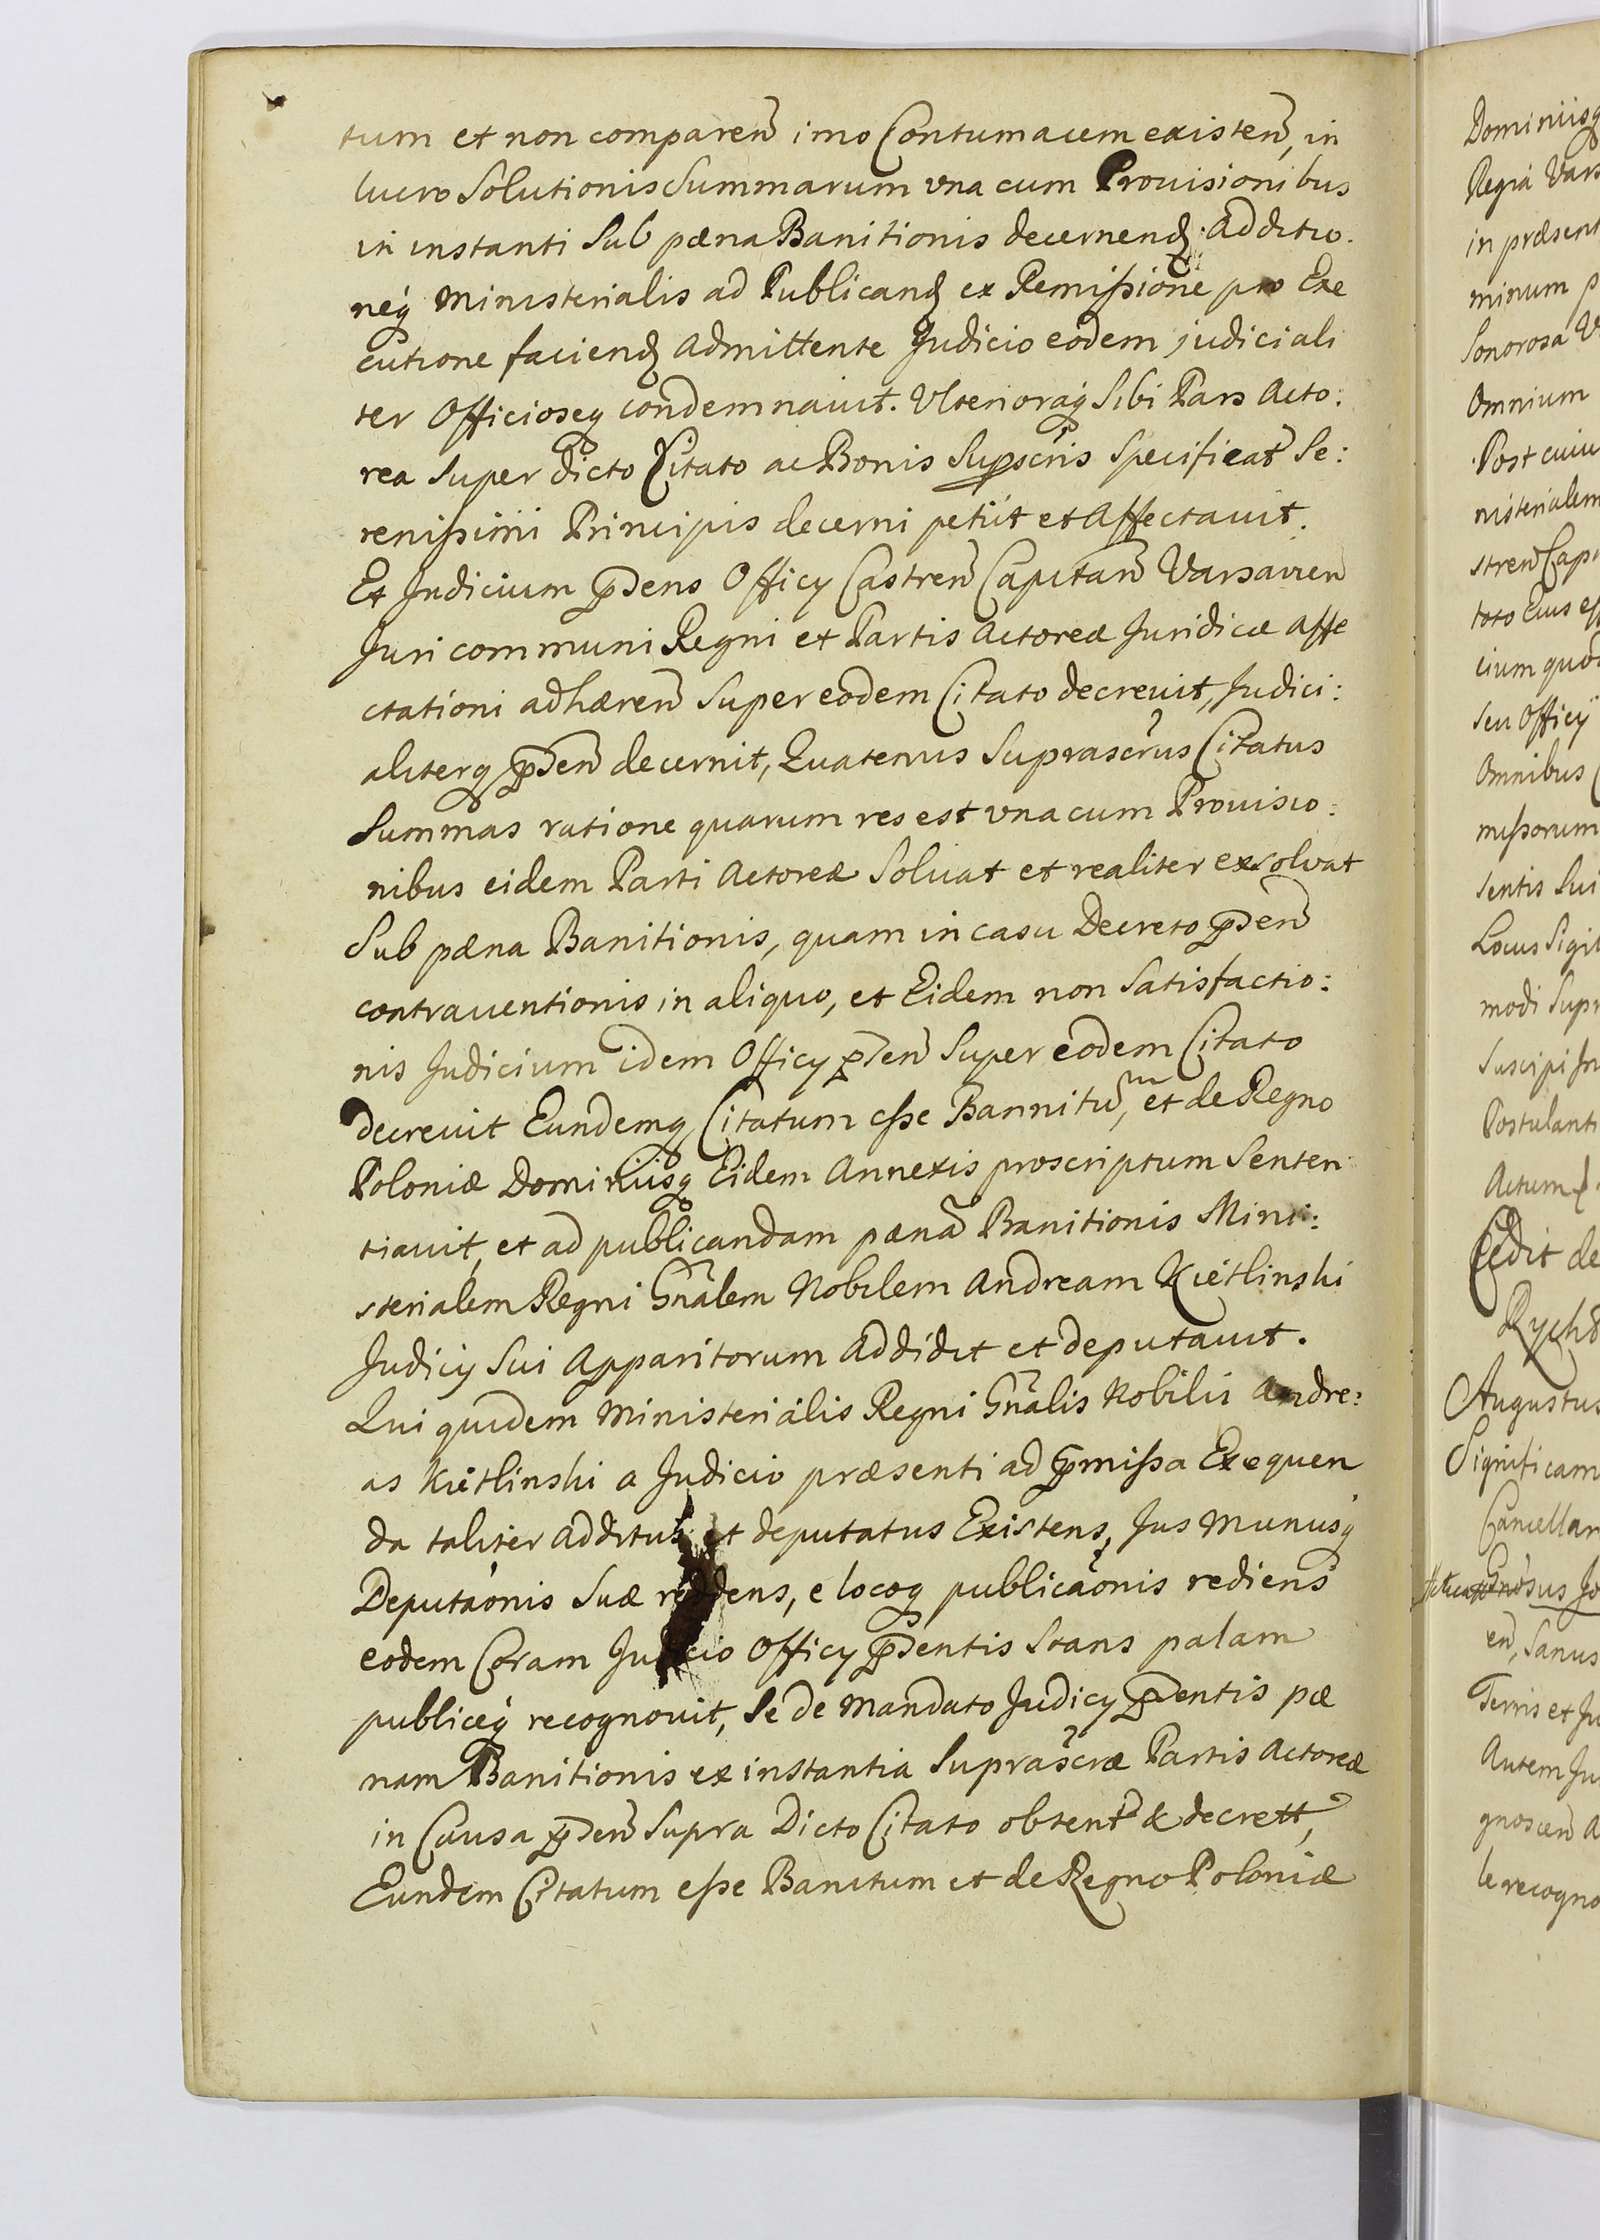 tum et non comparen̄ imo Contumacem existen̄, in
lucro Solutionis Summarum vna cum Prouisionibus
in instanti Sub pæna Banitionis decernend. Additio.
neq̨ Ministerialis ad Publicand ex Remissione pro Exe
cutione faciend Admittente Judicio eodem judiciali
ter Officioseq̨ condemnauit. Vlterioraq̨ Sibi Pars Acto:
rea super dicto Citato ac Bonis Suprscris Specificat Se:
renissimi Principis decerni petiit et Affectauit.
Et Judicium pñdens Officy Castren̄ Capitan̄ Varsauien
Juri communi Regni et Partis Actoreæ Juridicæ affe
ctationi adhæren̄ Super eodem Citato decreuit, Judici:
aliterq̨ pñden̄ decernit, Quatenus Suprascrus Citatus
Summas ratione quarum res est vna cum Prouisio:
nibus eidem Parti Actoreæ Soluat et realiter exsoluat
Sub pæna Banitionis, quam in casu Decreto pñden̄
contrauentionis in aliquo, et Eidem non Satisfactio:
nis Judicium idem Officy pñden̄ Super eodem Citato
decreuit Eundemq̨ Citatum esse Bannitū, et de Regno
Poloniæ Dominiisq̨ Eidem Annexis proscriptum Senten
tiauit, et ad publicandam pænā Banitionis Mini:
sterialem Regni Gn̄alem Nobilem Andream Kietlinski
Judicy Sui Apparitorum Addidit et deputauit.
Qui quidem Ministerialis Regni Gn̄alis Nobilis Andre:
as Kietlinski a Judicio præsenti ad pñmissa Exequen
da taliter additus et deputatus Existens, Jus Munusq̨
Deputãonis Suæ reddens, e locoq̨ publicãonis rediens
eodem Coram Judicio Officy pñdentis Stans palam
publiceq̨ recognouit, Se de Mandato Judicy pñdentis pæ
nam Banitionis ex instantia Suprascræ Partis Actoreæ
in Causa pñden̄ Supra Dicto Citato obtent & decrett,
Eundem Citatum esse Banitum et de Regno Poloniæ
Dominiisq
Regia Vars
in præsent
minum p
Sonorosa V
Omnium
Post cuiu
nisterialem
stren̄ Capi
toto Eius
cium quod
seu Officy
Omnibus
missorum
sentis Sui
Locus Sigil
modi Supr
Suscipi In
Postulanti
Actum
Cedit de
Augustus
Significam
Cancellar
en̄, Sanus
Terris et Ju
Autem Ju
gnoscen̄ A
le recogno